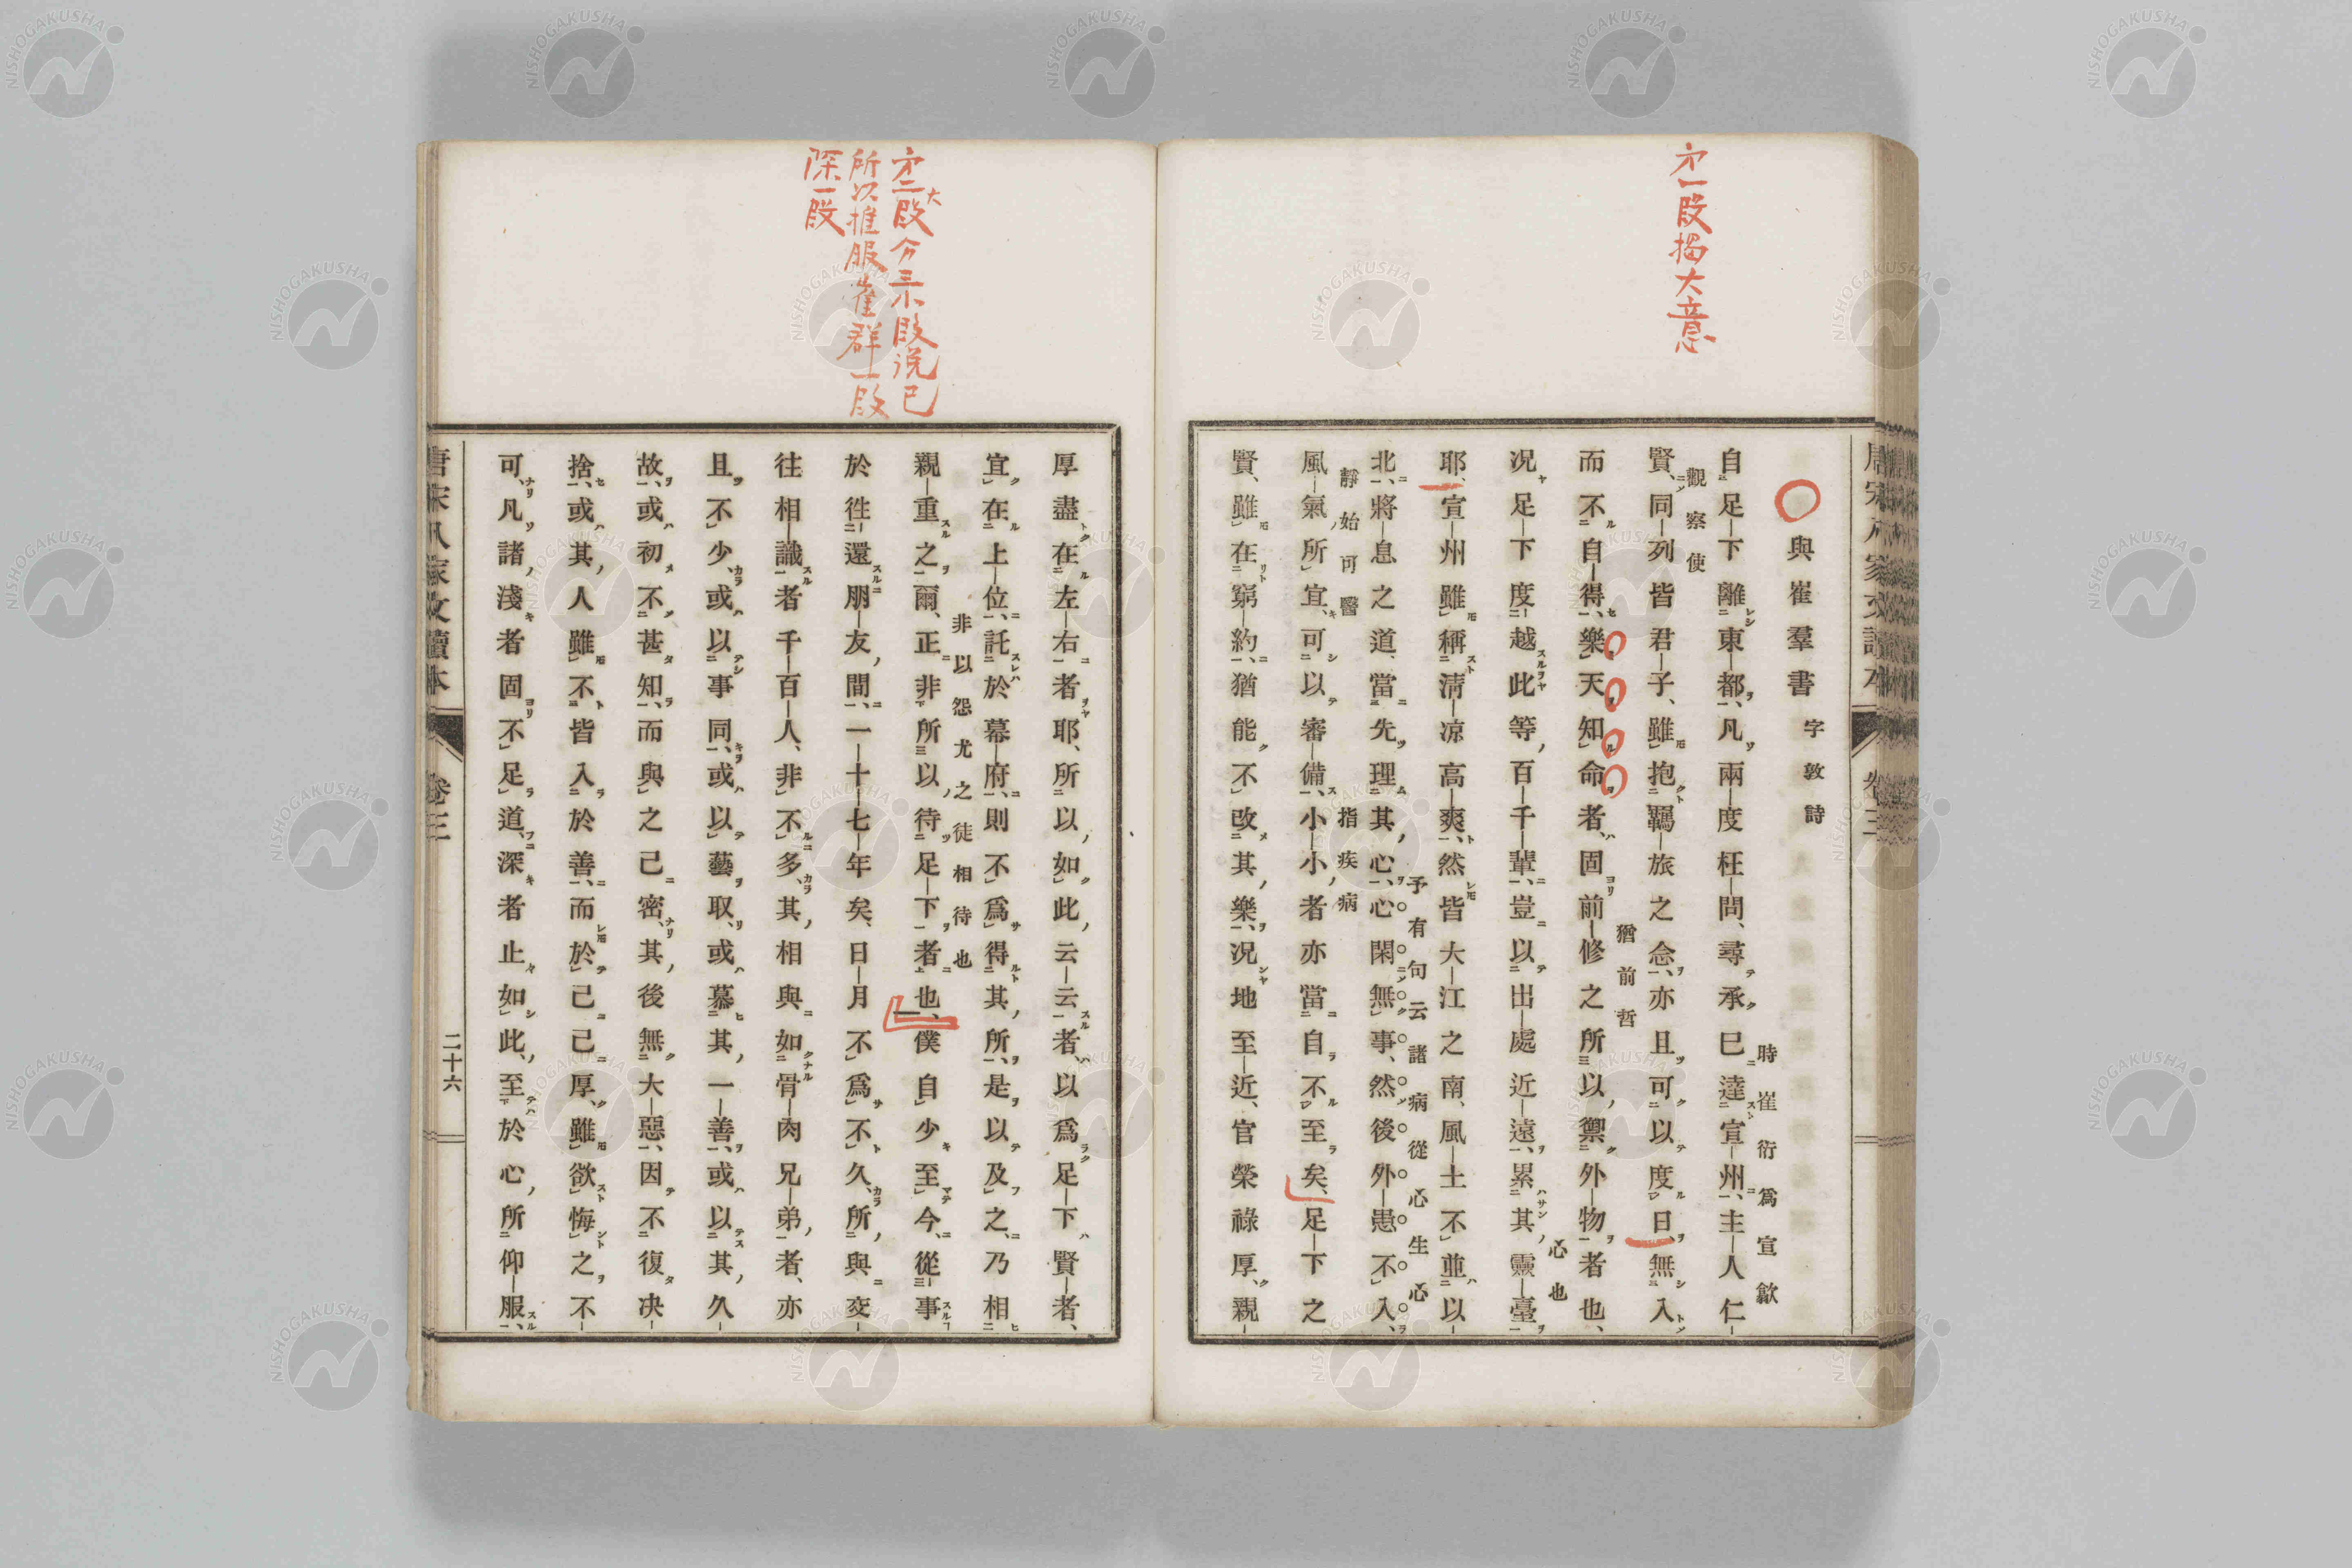 才一段掲大意
與崔羣書 字敦詩
自足下離東都、凡兩度枉問、尋承巳達宣州、主人仁
時崔衍爲宣歙
觀察使
賢、同列皆君子、雖抱羈旅之念、亦且可以度日、無入
而不自得、樂天知命者、固前修之所以禦外物者也、
猶前哲
况足下度越此等百千輩、豈以出處近遠、累其靈臺
心也
耶、宣州雖稱淸凉高爽、然皆大江之南、風土不並以
北、將息之道、當先理其心、心閑無事、然後外患不入、
予有句云諸病從心生心
靜始可醫
風氣所宜、可以審備、小小者亦當自不至矣、足下之
指疾病
賢、雖在窮約、猶能不改其樂、况地至近、官榮祿厚、親
唐宋八家文讀本 卷三
才二大段分三小段説已
所以推服崔群一段
深一段
厚盡在左右者耶、所以如此云云者、以爲足下賢者、
宜在上位、託於幕府、則不爲得其所、是以及之、乃相
親重之爾、正非所以待足下者也、僕自少至今、從事
非以怨尤之徒相待也
於徃還朋友間、一十七年矣、日月不爲不久、所與交
往相識者千百人、非不多、其相與如骨肉兄弟者、亦
且不少、或以事同、或以藝取、或慕其一善、或以其久
故、或初不甚知、而與之己密、其後無大惡、因不復决
捨、或其人雖不皆入於善、而於己己厚、雖欲悔之不
可、凡諸淺者固不足道、深者止如此、至於心所仰服、
唐宋八家文讀本 卷三 二十六
NISHOGAKUSHA